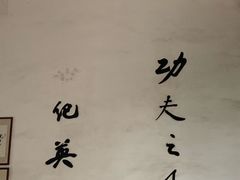 功夫之
纪英